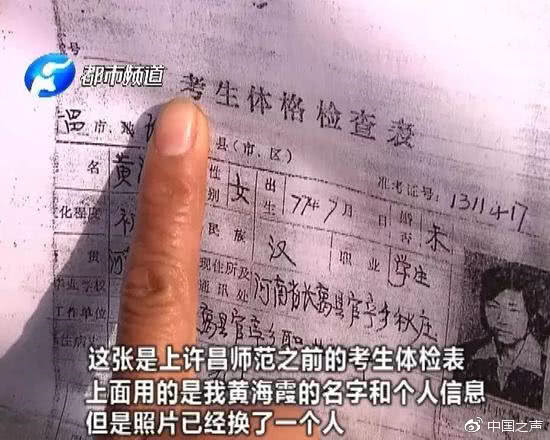 都市频道
考生体格检查表
市、地 县(市、区)
名 黄 性别 女 出生 77年7月 日 婚否 未
准考证号: 1311417
化程度 初 民族 汉 职业 学生
贯 河 现住所及通讯处 河南省长葛县官亭乡秋庄
毕业学校
工作单位 葛县官亭乡职
病史
这张是上许昌师范之前的考生体检表
上面用的是我黄海霞的名字和个人信息
但是照片已经换了一个人
中国之声